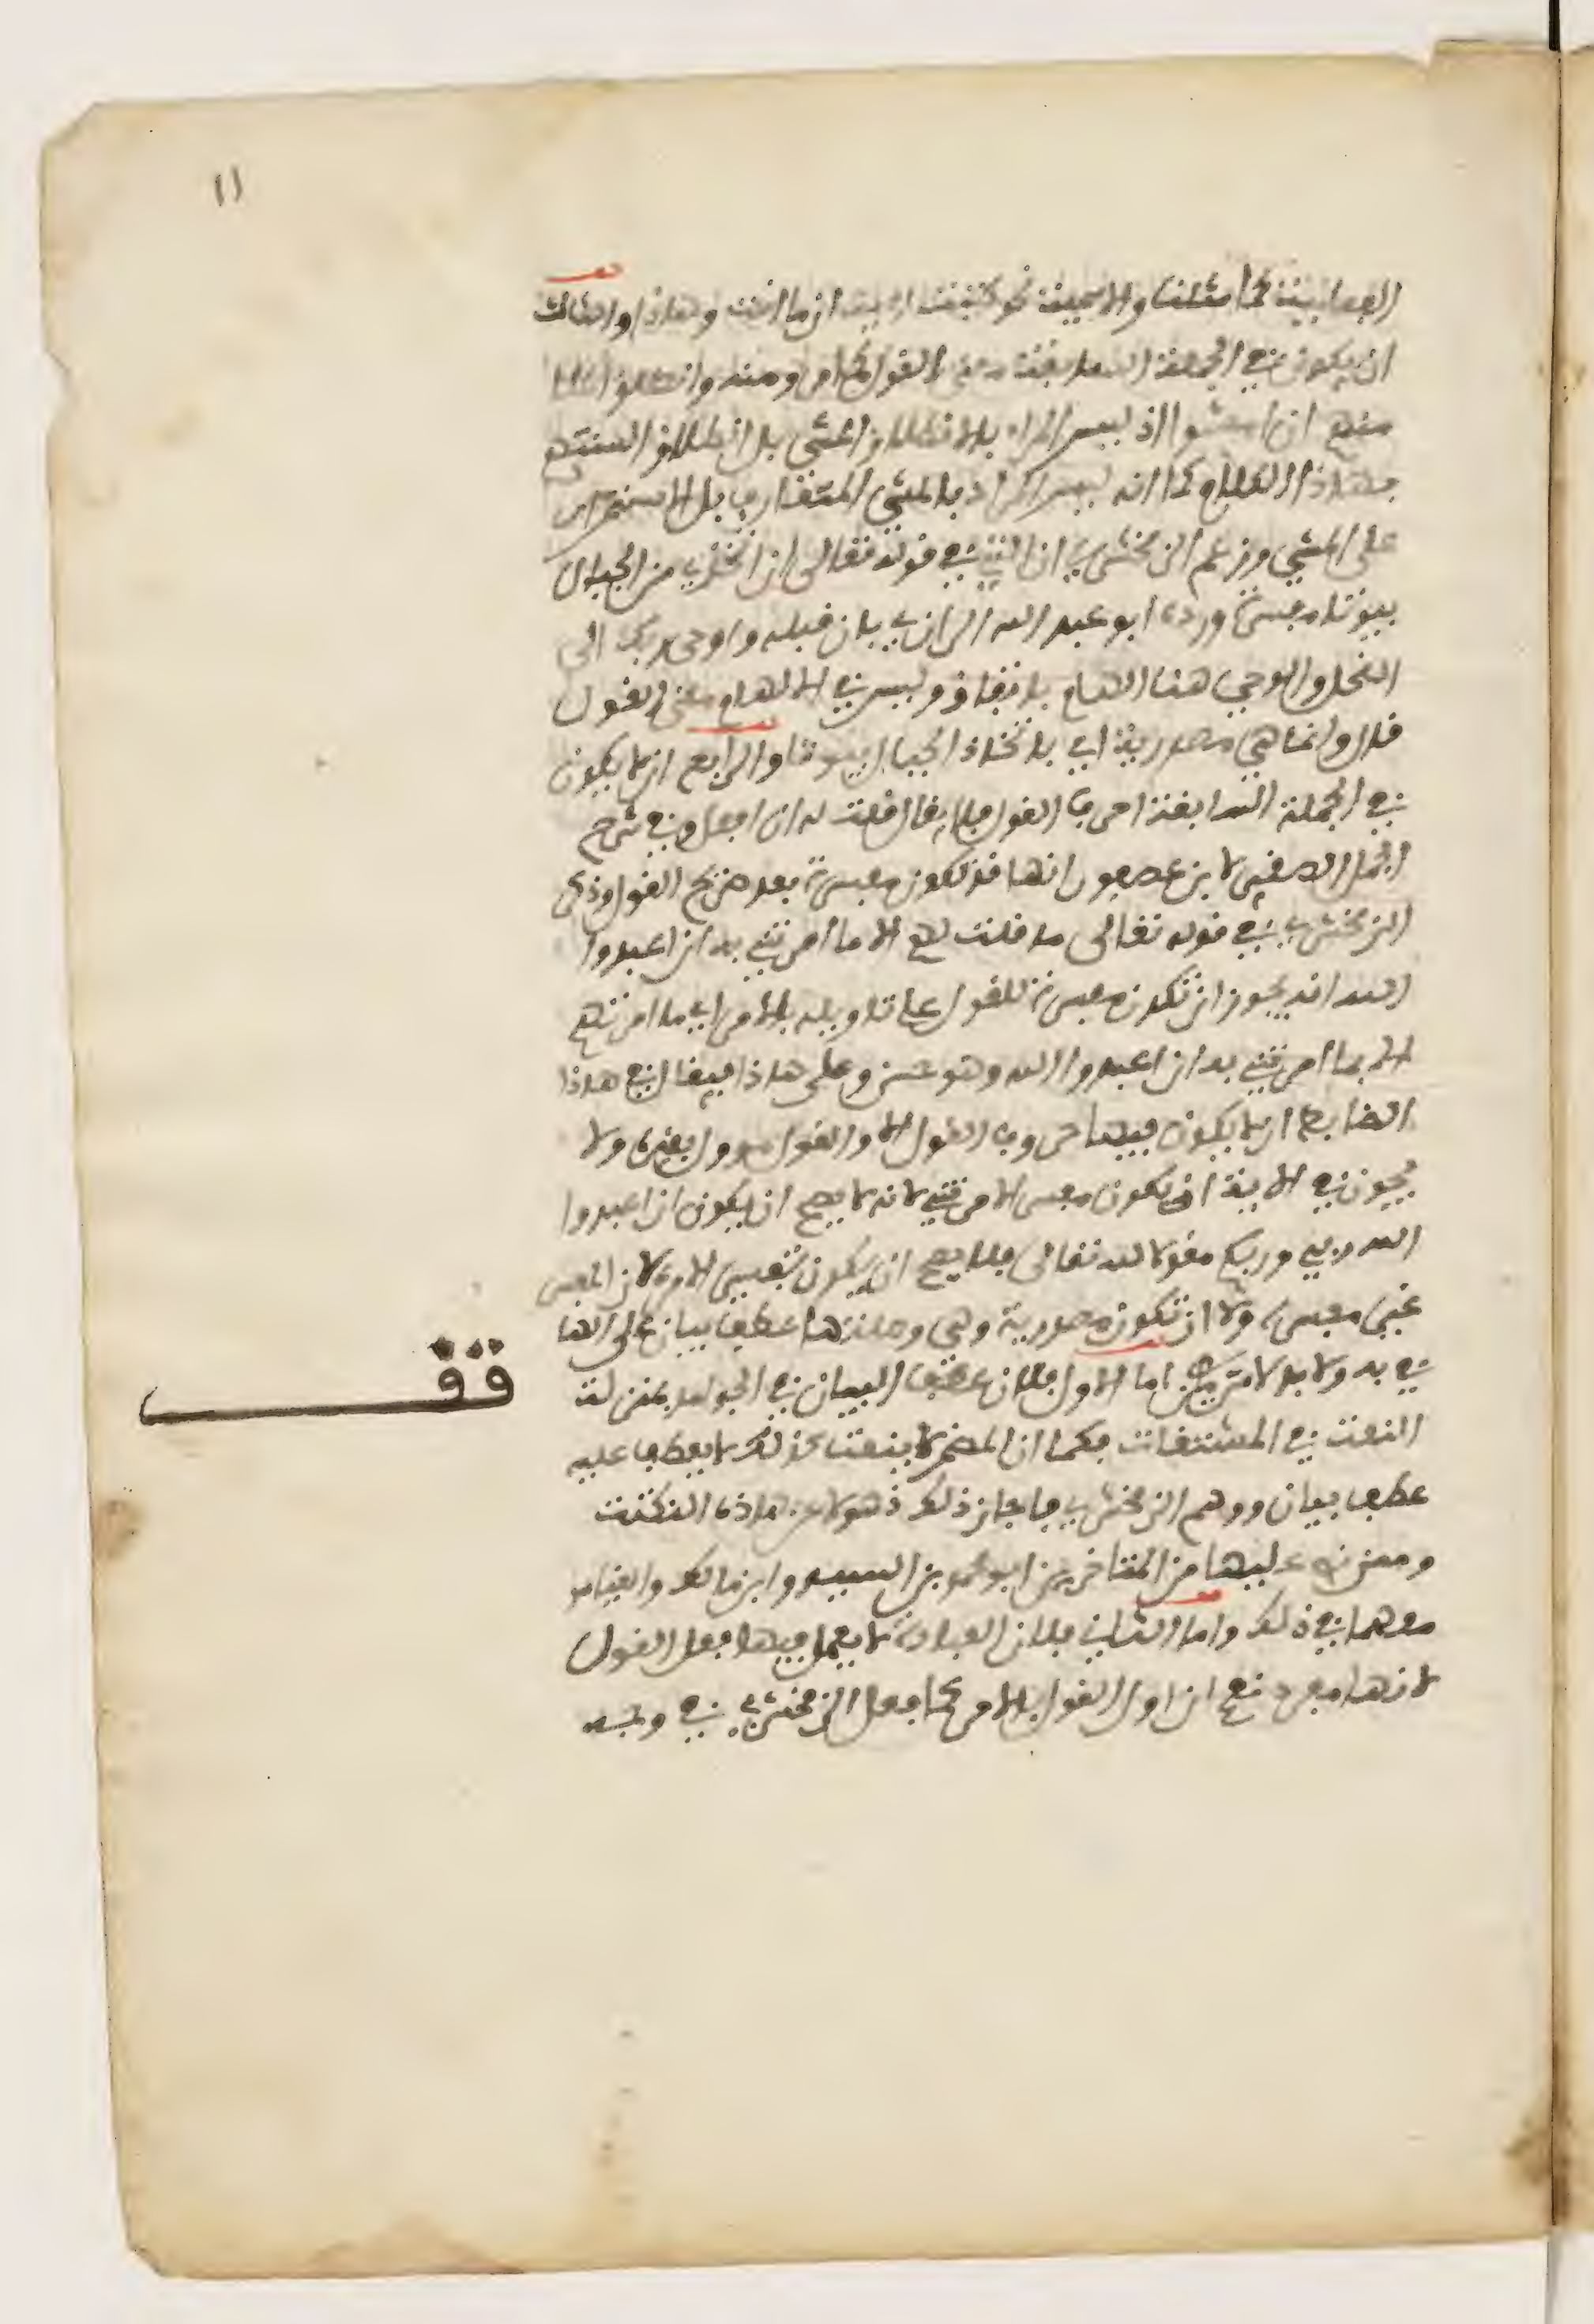 ١١
الفعلية كما مثلنا والاسمية نحو كتبت اليه ان ما انت وهاذا والثالث
ان يكون في الجملة السابقة معنى القول كما مر ومنه وانطلق الملا
منهم ان امشوا اذ ليس المراد بالانطلاق المشي بل انطلاق السنتهم
بهذا الكلام كما انه ليس المراد بالمشي المتعارف بل الاستمرار
على المشي وزعم الزمخشري ان التي في قوله تعالى ان اتخذي من الجبال
بيوتا مفسرة ورده ابو عبد الله الرازي بان قبله واوحى ربك الى
النحل والوحي هنا الهام باتفاق وليس في الالهام معنى القول
قال وانما هي مصدرية اي باتخاذ الجبال بيوتا والرابع ان لا يكون
في الجملة السابقة احرف القول فلا يقال قلت له ان افعل وفي شرح
الجمل الصغير لابن عصفور انها قد تكون مفسرة بعد صريح القول وذكر
الزمخشري في قوله تعالى ما قلت لهم الا ما امرتني به ان اعبدوا
الله انه يجوز ان تكون مفسرة للقول على تاويله بالامر اي ما امرتهم
الا بما امرتني به ان اعبدوا الله وهو حسن وعلى هاذا فيقال في هاذا
الضابط ان لا يكون فيها حروف القول الا والقول موول بغيره ولا
يجوز في الاية ان تكون مفسرة لامرتني لانه لا يصح ان يكون ان اعبدوا
الله ربي وربكم مقولا لله تعالى فلا يصح ان يكون تفسيرا لامره لان المفسر
عين مفسره ولا ان تكون مصدرية وهي وصلتها عطف بيان على الها
في به ولا بدلا من ما اما الاول فلان عطف البيان في الجوامد بمنزلة
النعت في المشتقات فكما ان المضمر لا ينعت كذلك لا يعطف عليه
عطف بيان ووهم الزمخشري فاجاز ذلك ذهولا عن هاذه النكتة
وممن نص عليها من المتاخرين ابو محمد بن السيد وابن مالك والقياس
معهما في ذلك واما الثاني فلان العبادة لا يعمل فيها فعل القول
لانها مفرد نعم ان اول القول بالامر كما فعل الزمخشري في وجه
قف